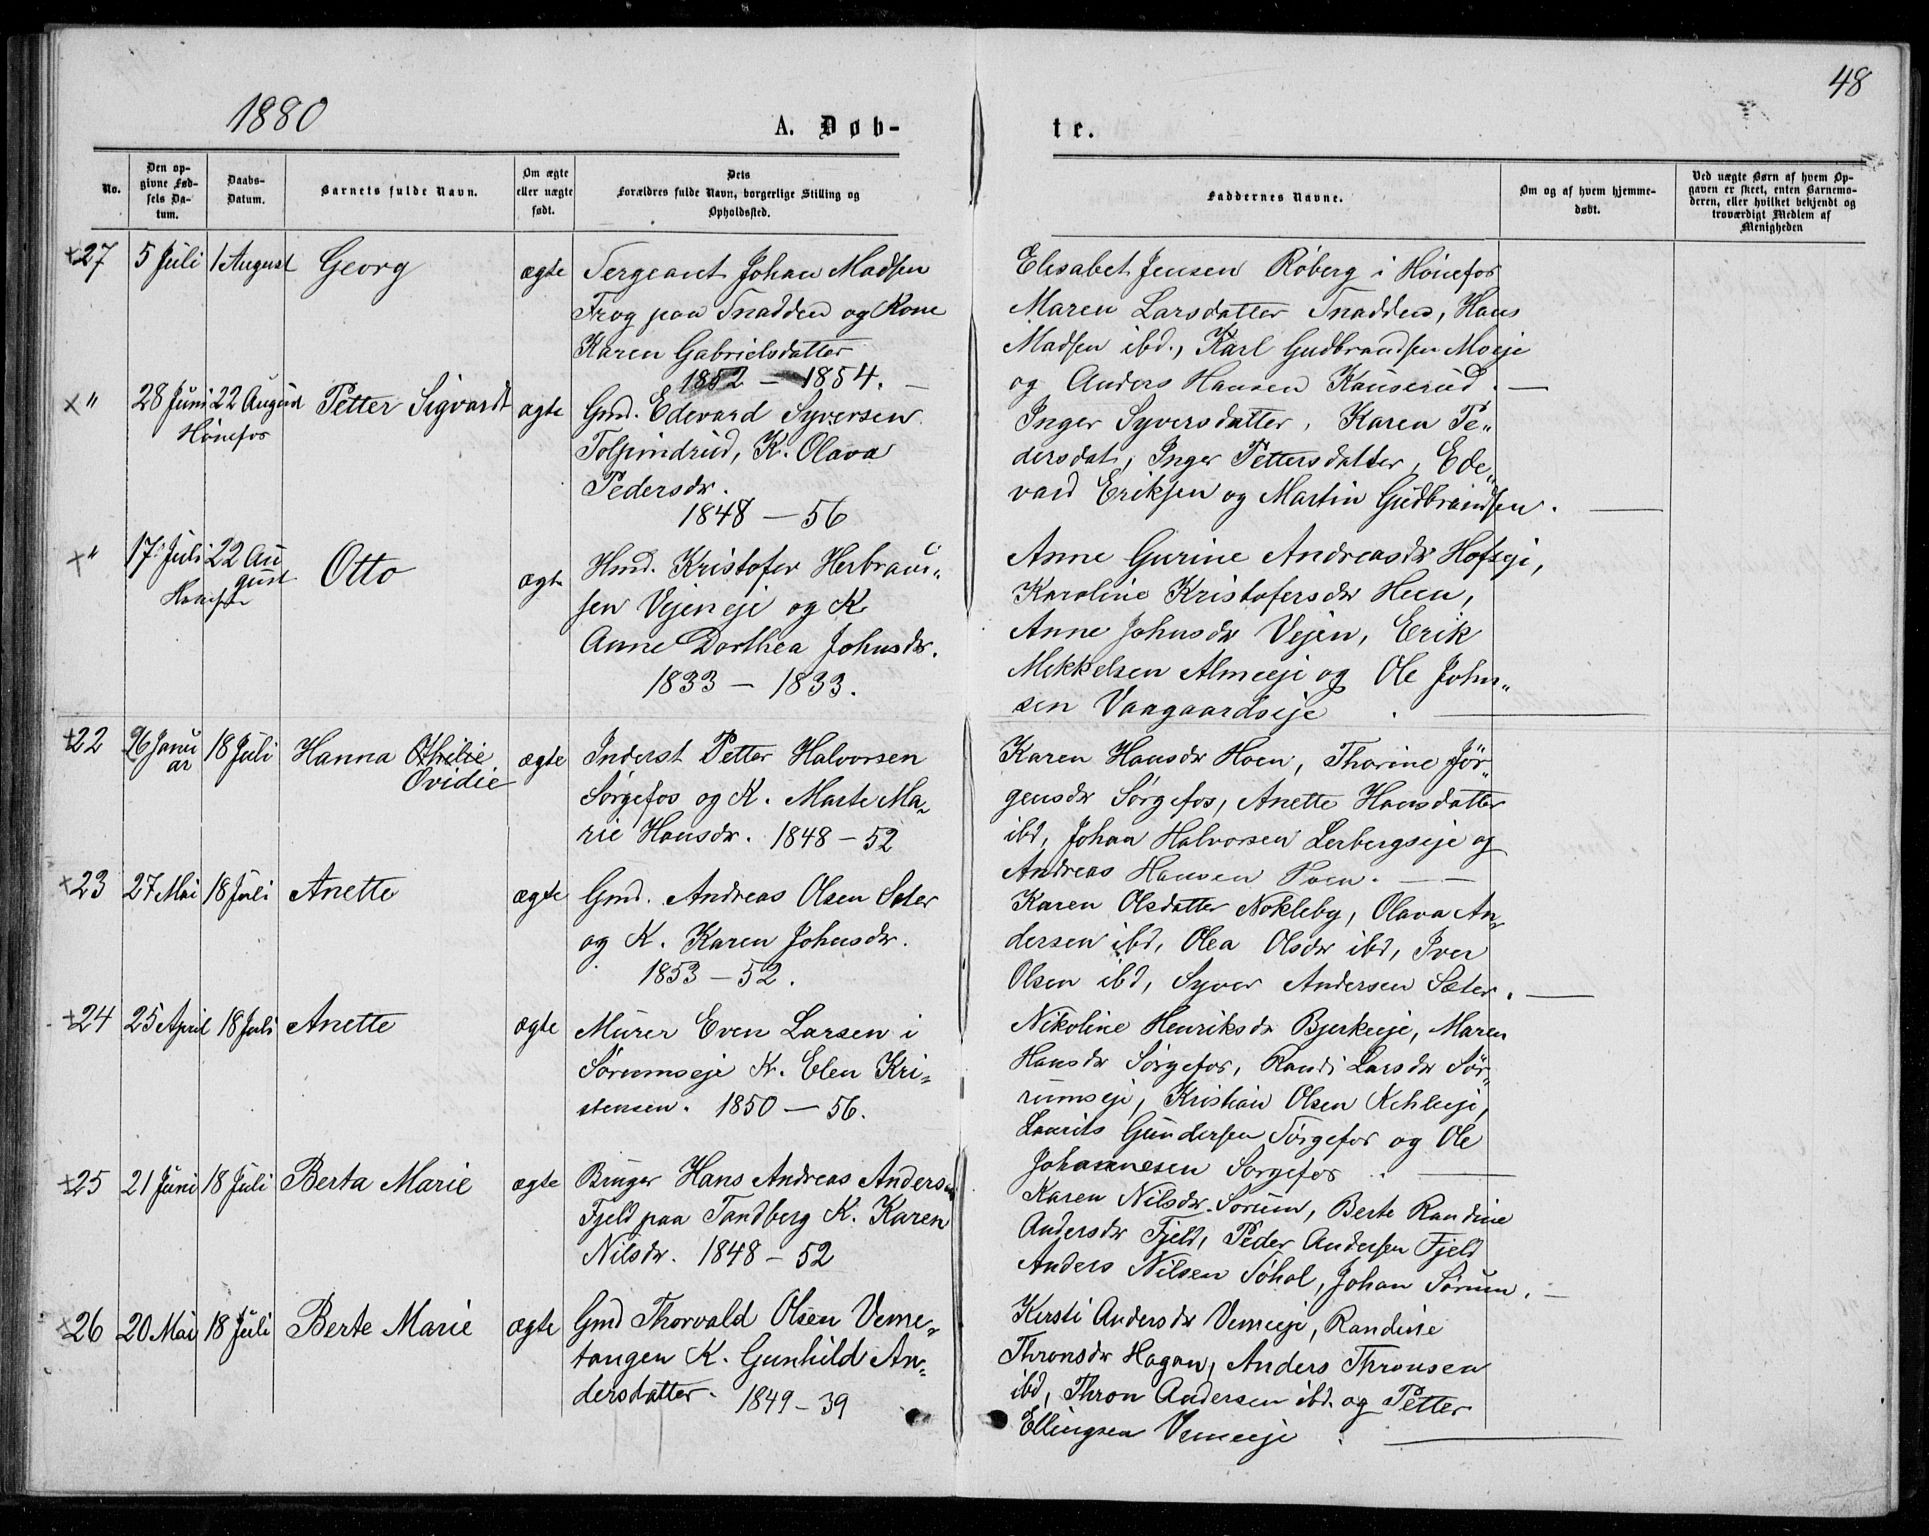 48
1880
A. Døb-
te.
No.
Den op-
givne Fød-
sels Da-
tum.
Daabs-
Datum.
Barnets fulde Navn.
Om ægte
eller uægte
født.
Dets
Forældres fulde Navn, borgerlige Stilling og
Opholdssted.
Faddernes Navne.
Om og af hvem hjemme-
døbt.
Ved uægte Børn af hvem Op-
gaven er skeet, enten Barnemo-
deren, eller hvilket bekjendt og
troværdigt Medlem af
Menigheden
×27 5 Juli 1 August Georg ægte
Sergeant Johan Madsen
Frog paa Tnadden og Kone
Karen Gabrielsdatter
1852 – 1854. –
Elisabet Jensen Röberg i Hönefos
Maren Larsdatter Tnadden, Hans
Madsen ibd., Karl Gudbrandsen Moeje
og Anders Hansen Kauserud. —
×" 28 Juni 22 August Petter Sigvardt ægte
Hönefos
Gmd. Edevard Syversen
Tolpindrud, K. Olava
Pedersdr.
1848 – 56
Inger Syversdatter, Karen Pe„
dersdat, Inger Pettersdatter, Ede„
vard Eriksen og Martin Gudbrandsen. —
×" 17 Juli 22 Au
gust Otto ægte
Hönefos
Hmd. Kristofer Herbrand„
sen Vejeneje og K.
Anne Dorthea Johnsdr.
1833 – 1833.
Anne Gurine Andreasdr Hofseje,
Karoline Kristofersdr Heen,
Anne Johnsdr Vejen, Erik
Mekkelsen Almeeje og Ole John„
sen Vaagaardseje. —
×22 26 Janu
ar 18 Juli Hanna Othilie
Ovidie ægte
Inderst Petter Halvorsen
Sörgefos og K. Marte Ma„
rie Hansdr. 1848 – 52
Karen Hansdr Hoen, Thorine Jör„
gensdr Sörgefos, Anette Hansdatter
ibd, Johan Halvorsen Lerbergseje og
Andreas Hansen Hoen. —
×23 27 Mai 18 Juli Anette ægte
Gmd. Andreas Olsen Sæter
og K. Karen Johnsdr.
1853 – 52.
Karen Olsdatter Nokleby, Olava An„
dersen ibd, Olea Olsdr ibd, Iver
Olsen ibd, Syver Andersen Sæter. —
×24 25 April 18 Juli Anette ægte
Murer Even Larsen i
Sörumseje K. Elen Kri„
stensen. 1850 – 56.
Nikoline Henriksdr Bjerkeeje, Maren
Hansdr Sörgefos, Randi Larsdr Sör„
rumseje, Kristian Olsen Kihleeje,
Laurits Gundersen Sörgefos og Ole
Johannesen Sörgefos. —
×25 21 Juni 18 Juli Berta Marie ægte
Bruger Hans Andreas Andersen
Fjeld paa Tandberg K. Karen
Nilsdr. 1848 – 52
Karen Nilsdr. Sörum, Berte Randine
Andersdr Fjeld, Peder Andersen Fjeld
Anders Nilsen Söhol, Johan Sörum. —
×26 20 Mai 18 Juli Berte Marie ægte
Gmd Thorvald Olsen Veme„
tangen K. Gunhild An„
dersdatter. 1849 – 39
Kersti Andersdr Vemeeje, Randine
Thronsdr Hagan, Anders Thronsen
ibd, Thron Andersen ibd. og Petter
Ellingsen Vemeeje. —